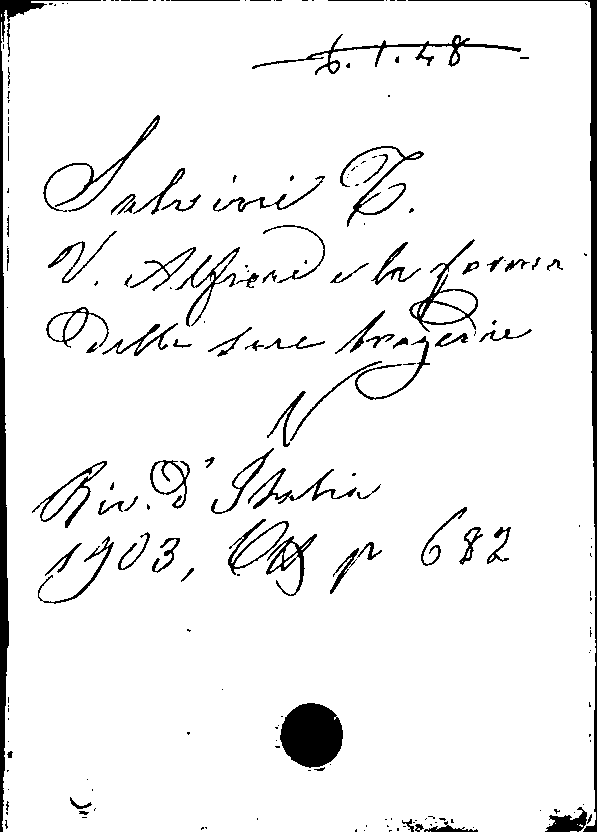 6.1.48
Salvini T.
V. Alfieri e la forma
delle sue tragedie
N
Riv. d'Italia
1903, p 682